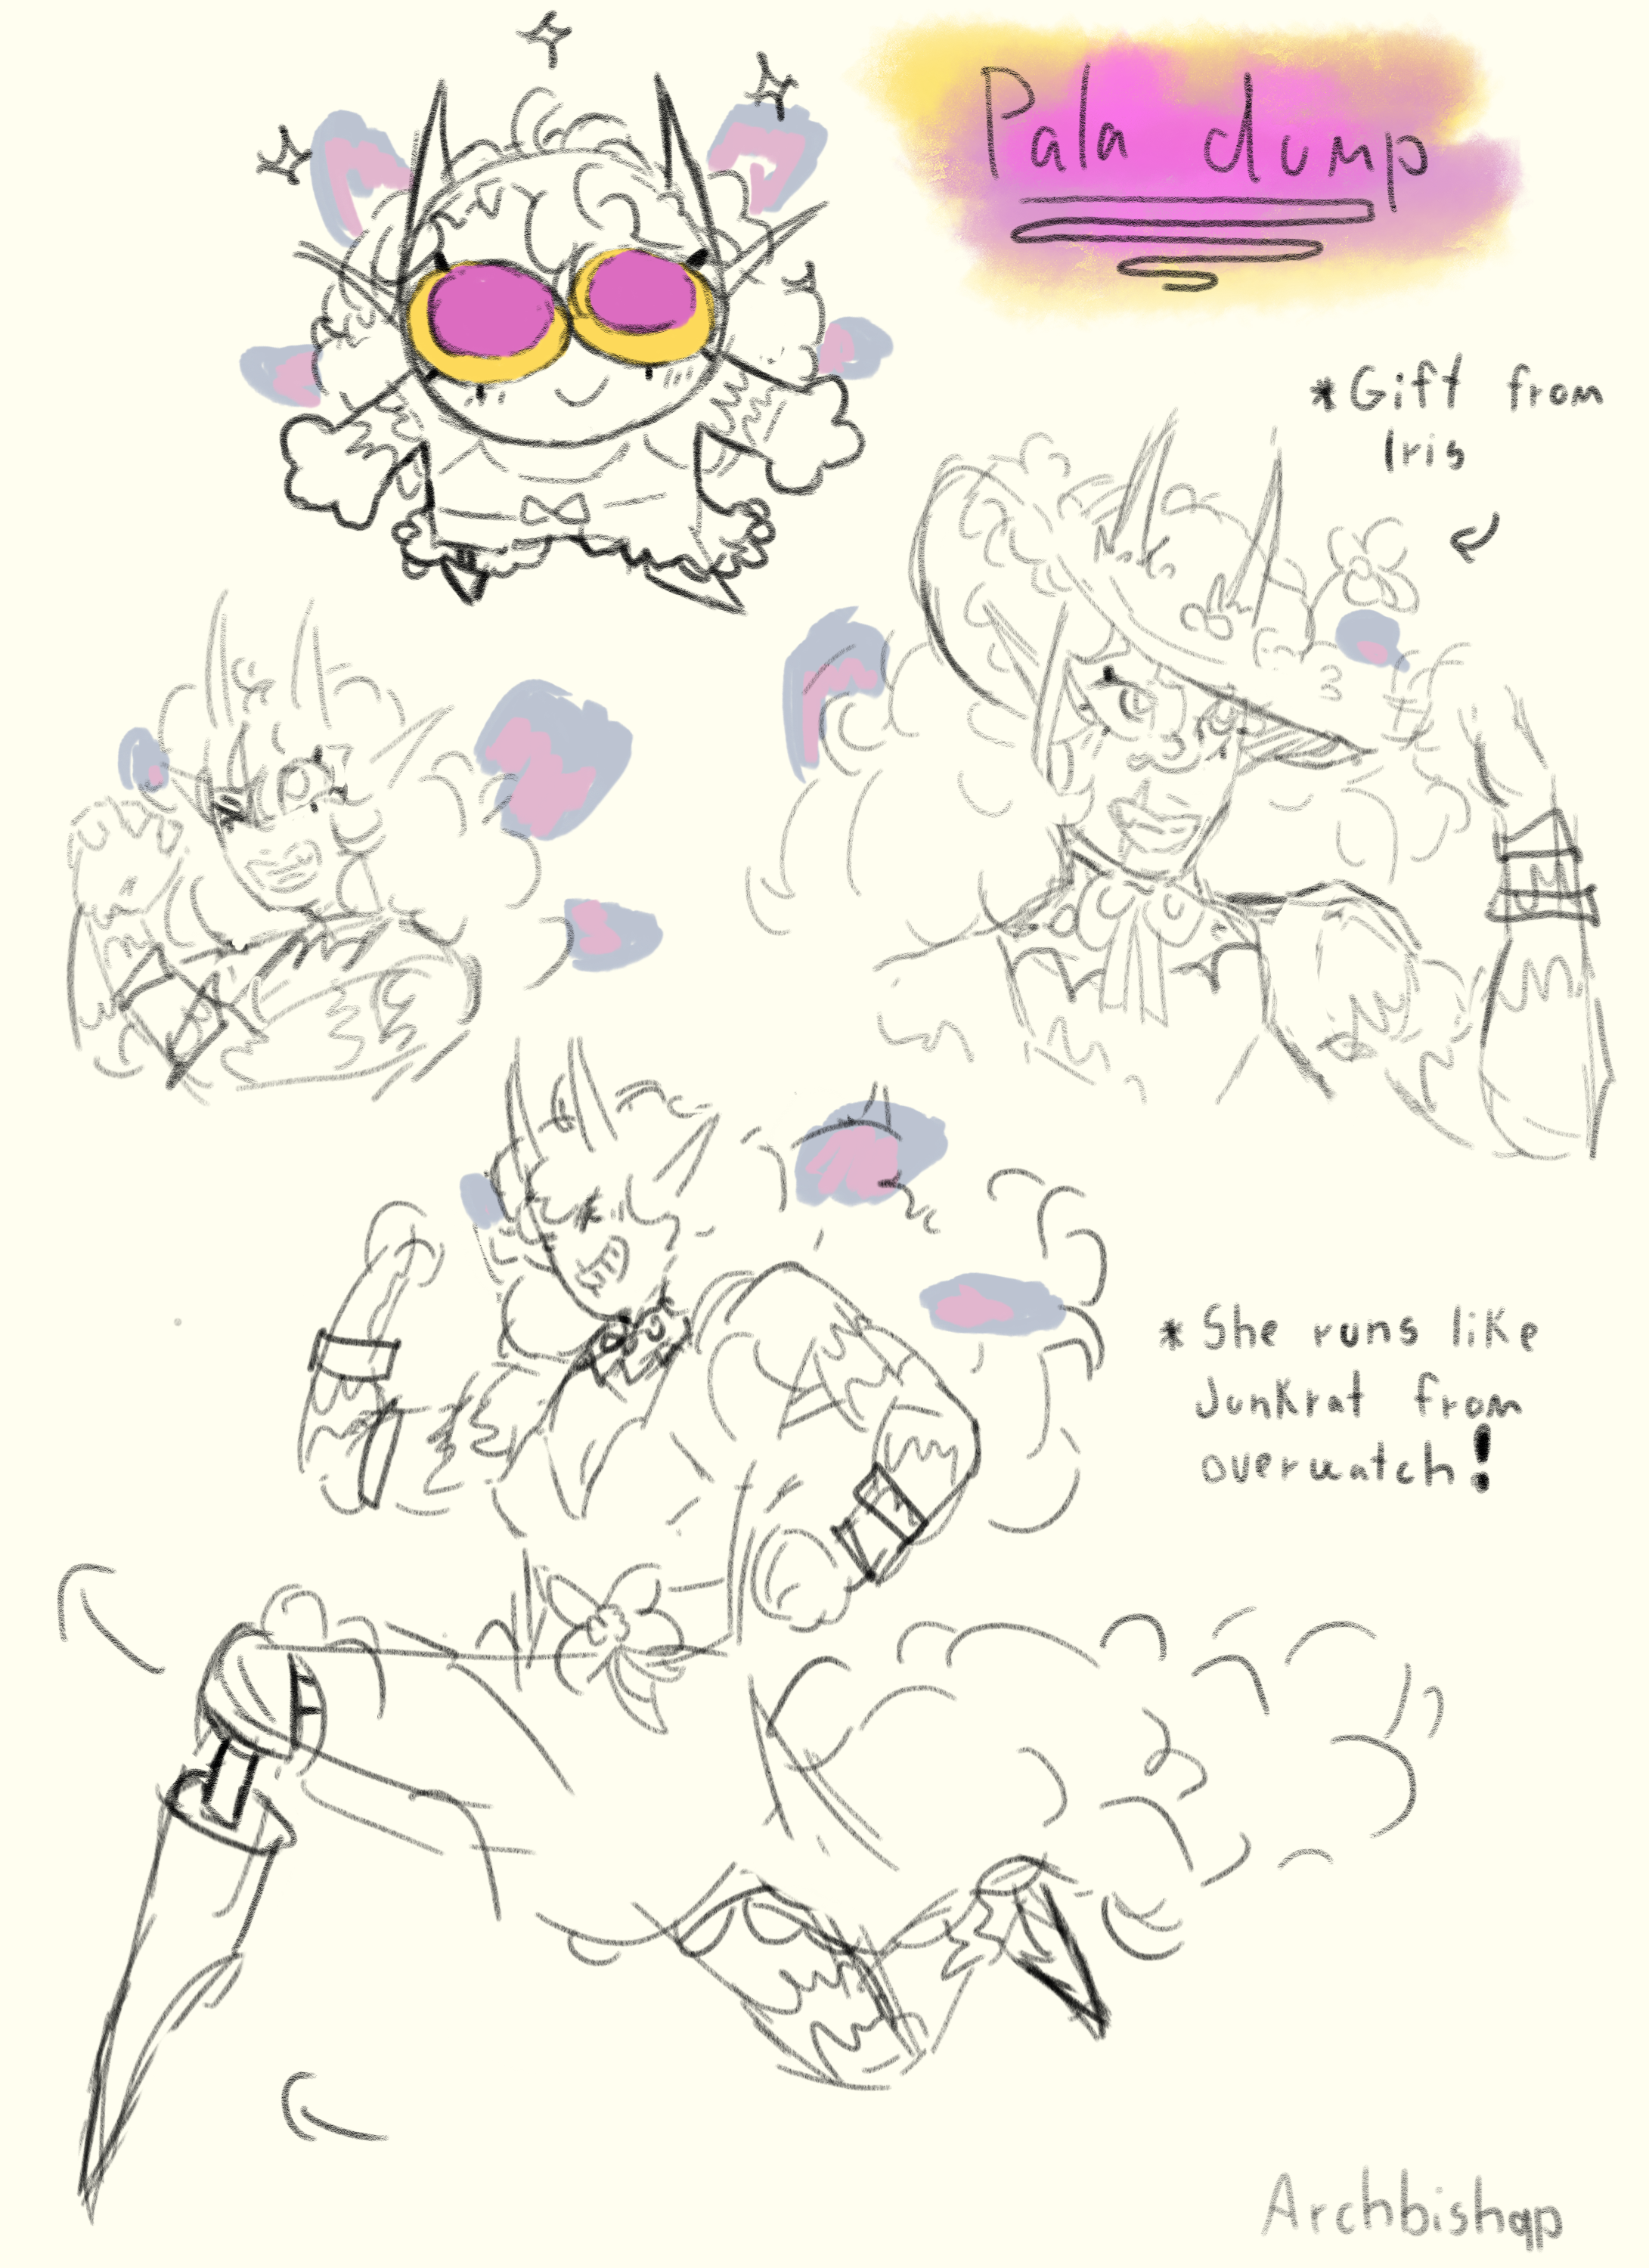 Pala dump
*Gift from
Iris
*She runs like
Junkrat from
overwatch!
Archbishqp